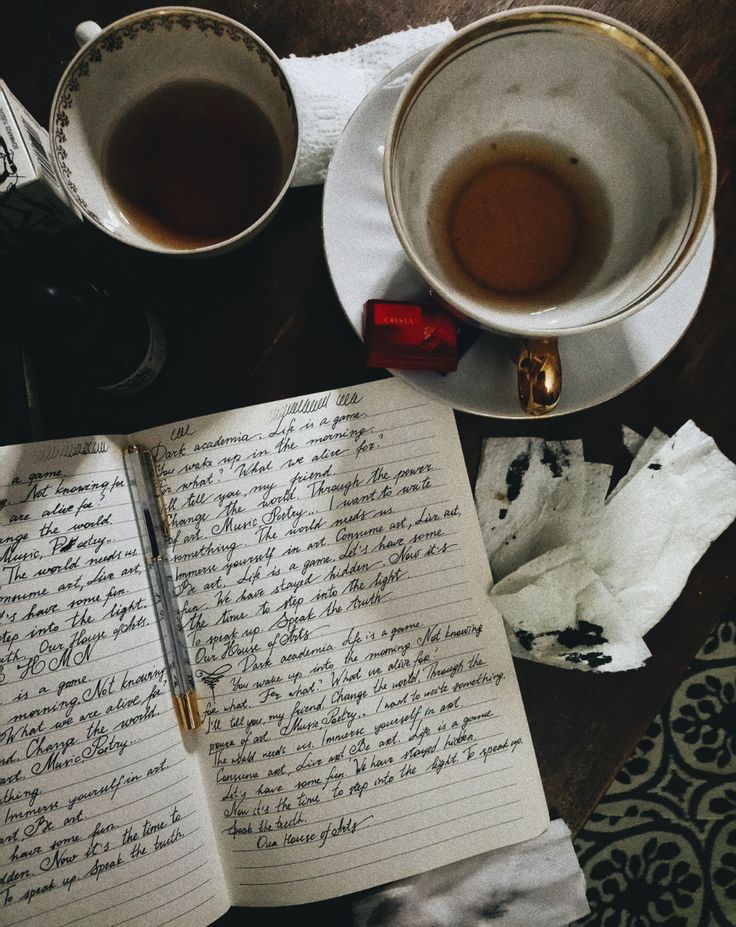 CRISTA
a game.
Not knowing for
are alive for?
change the world.
Music, Poetry..
The world needs us.
Consume art, Live art,
Let's have some fin.
step into the light.
Our House of Arts.
H M N
is a game.
morning. Not knowing
What we are alive for?
Change the world.
art. Music Poetry...
thing.
Immerse yourself in art.
art Be art.
have some fun
Now it's the time to
To speak up. Speak the truth.
Dark academia. Life is a game.
You wake up in the morning.
For what? What we alive for?
I'll tell you, my friend.
Change the world. Through the power
of art. Music Poetry... I want to write
something. The world needs us.
Immerse yourself in art Consume art, Live art,
Be art. Life is a game. Let's have some
fun. We have stayed hidden. Now it's
the time to step into the light.
To speak up. Speak the truth
Our House of Arts
Dark academia. Life is a game.
You wake up into the morning Not knowing
for what. For what? What we alive for?
I'll tell you, my friend Change the world. Through the
power of art. Music Poetry.. I want to write something.
The world needs us. Immerse yourself in art.
Consume art, Live art Be art. Life is a game
Let's have some fun. We have stayed hidden.
Now it's the time to step into the light. To speak up.
Speak the truth.
Our House of Arts